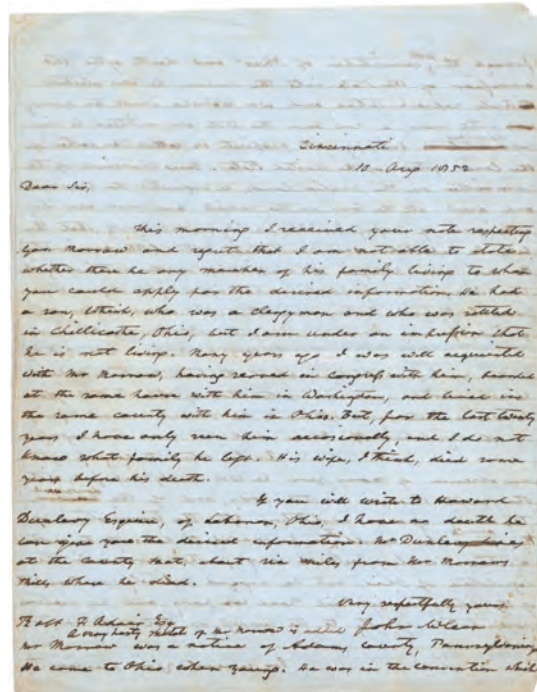 Cincinnati
10 Aug 1852
Dear Sir,
This morning I received your note respecting
Gov Morrow and regret that I am not able to state
whether there be any member of his family living to whom
you could apply for the desired information. He had
a son, I think, who was a clergyman and who was settled
in Chillicothe, Ohio, but I am under an impression that
he is not living. Many years ago I was well acquainted
with Mr Morrow, having served in Congress with him, boarded
at the same house with him in Washington, and lived in
the same county with him in Ohio. But, for the last twenty
years I have only seen him occasionally, and I do not
know what family he left. His wife, I think, died some
years before his death.
If you will write to
Dunlavy Esquire, of Lebanon, Ohio, I have no doubt he
can give you the desired information. Mr Dunlavy lives
at the County seat, about six miles from Mr Morrows
Mills where he died.
Very respectfully yours
Adair Esq John McLean
A very hasty sketch of Mr Morrow is added
Mr Morrow was a native of Adams County, Pennsylvania
He came to Ohio when young. He was in the convention which